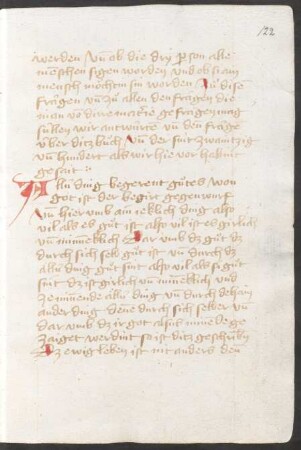 122
werden Vn̄ ob die dry p̄son alle
menschen sigen worden vnd ob si ain
mensch möchtin sin worden In dise
fragen vn̄ zu allen den fragen die
man vo diser materie gefragen mag
süllen wir antwürte vn̄ den frage
über ditz buch Vn̄ der sint zwaintzig
vn̄ hundert als wir hie vor habint
gesait
Allu ding begerent gutes Won
got ist der begirt gegenwurf
Vn̄ hier vmb ain ieklich ding also
vil als es gůt ist also vil ist es girlich
vn̄ minneklich Dar vmb dz gůt dz
durch sich selb gůt ist vn̄ durch dz
allu ding gůt sint also vil als si gůt
sint dz ist girlich vn̄ minneklich vnd
ze minnende allu ding vn̄ durch dehain
ander ding denne durch sich selber vn̄
dar vmb dz ir got also minnende ge
zaiget werdint so ist ditz geschriben
Dz ewig leben ist nit anders den